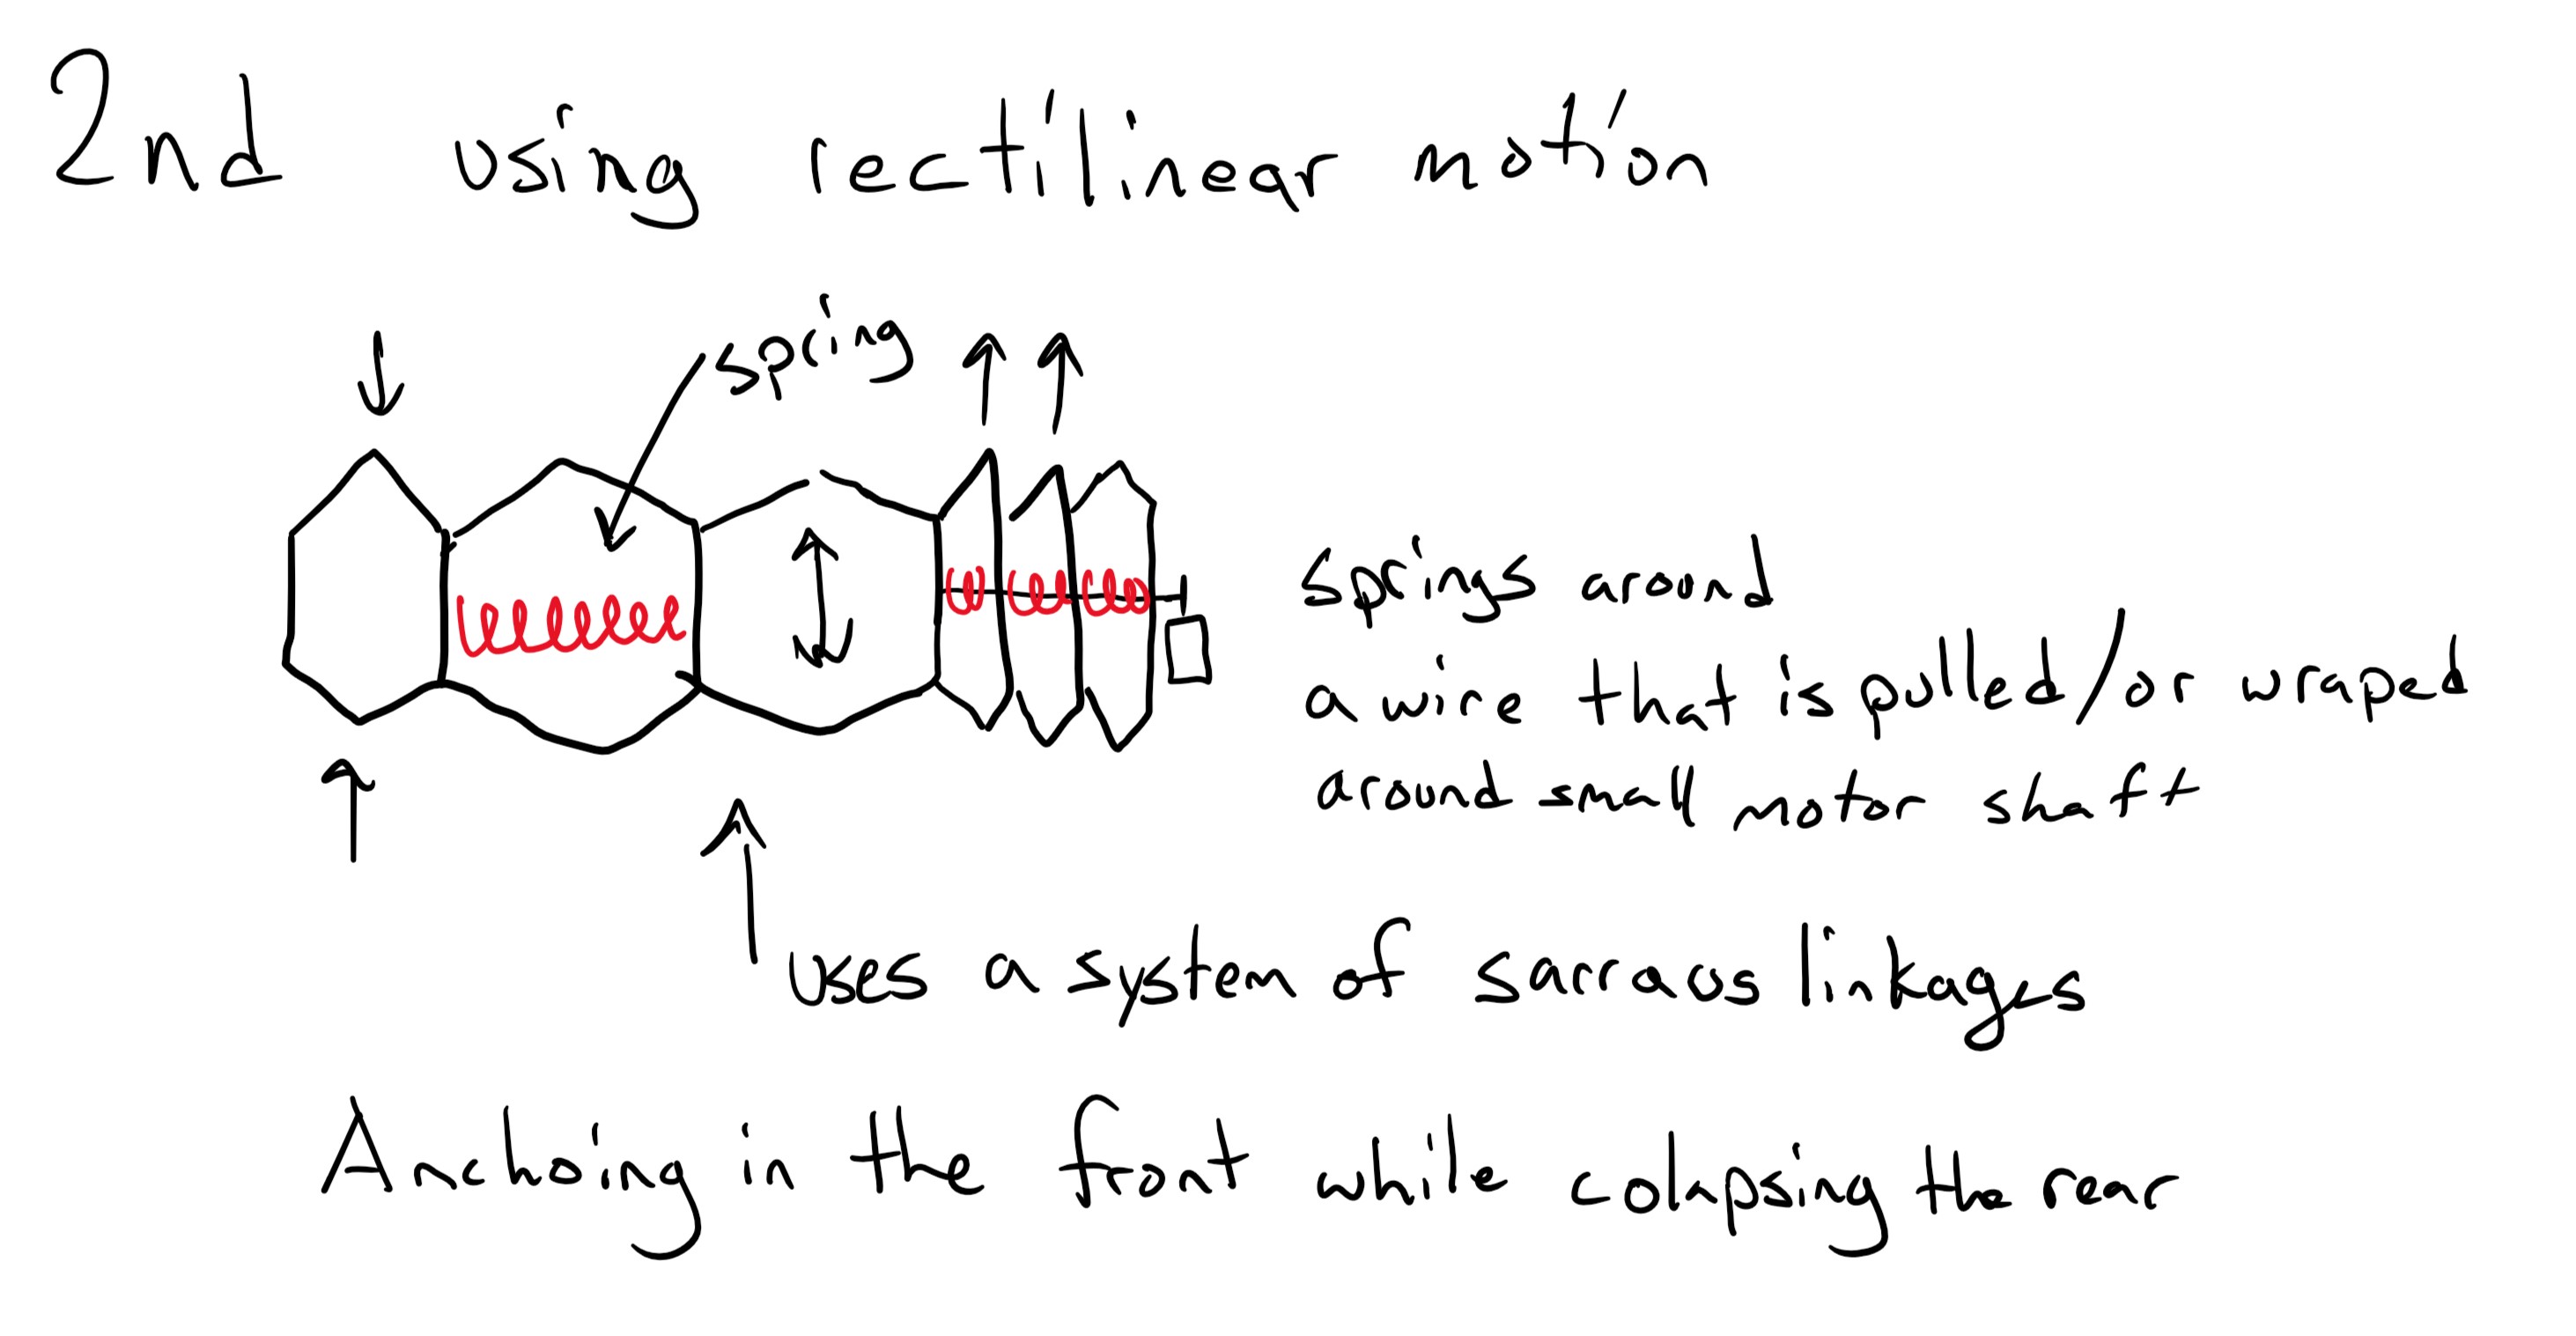 2nd using rectilinear motion
spring
springs around
a wire that is pulled/or wraped
around small motor shaft
uses a system of sarraus linkages
Anchoing in the front while colapsing the rear